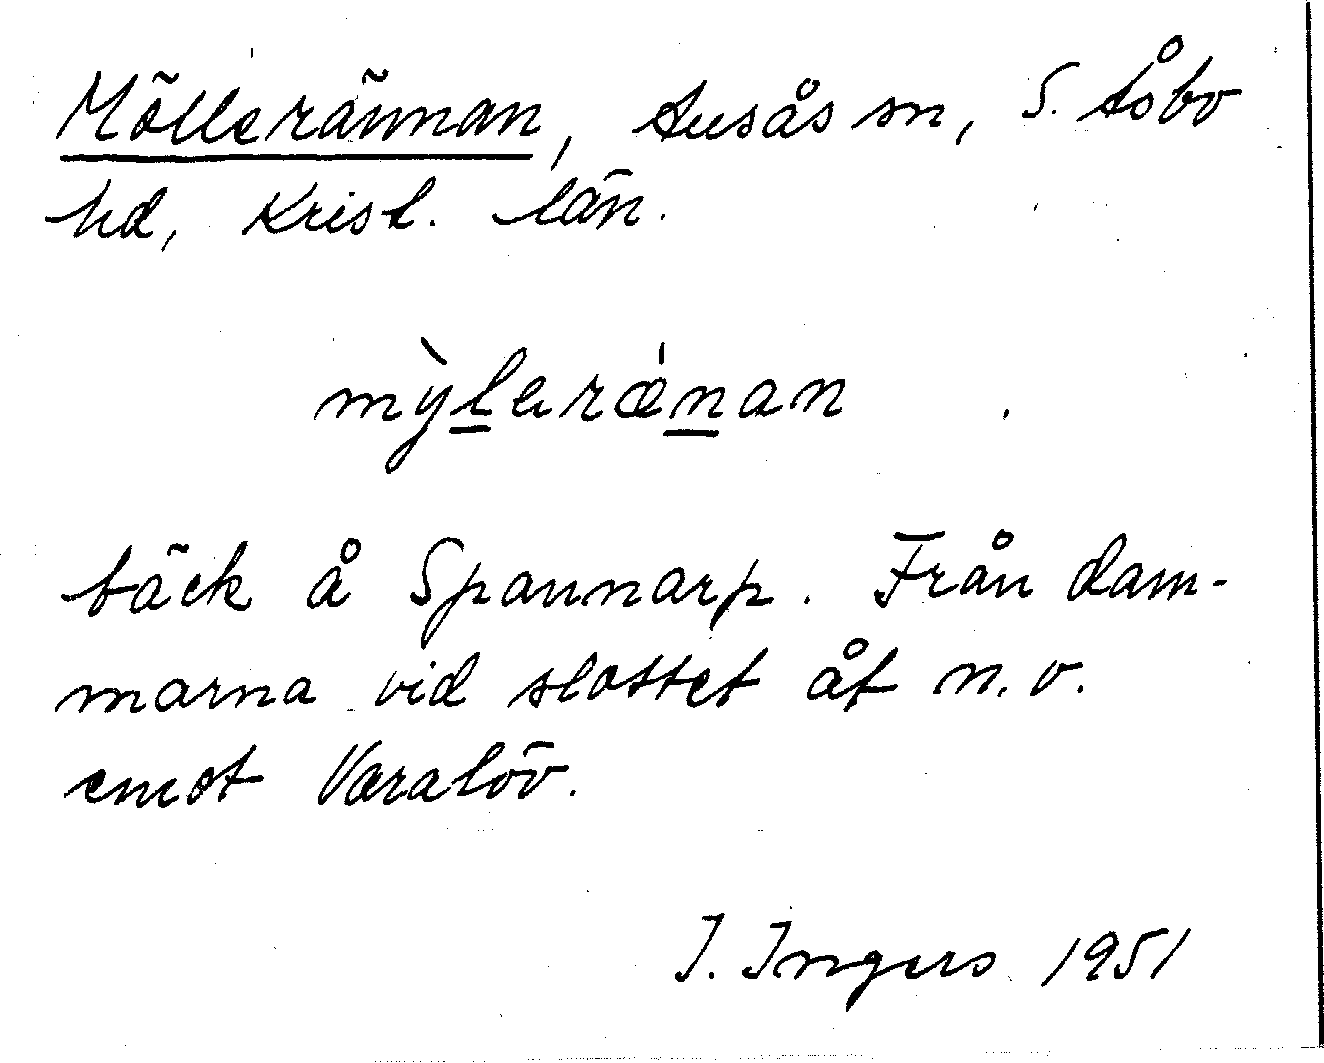 Möllerännan, Ausås sn, S. Åsbo
hd, Krist. län.
mỳlerǽnan
bäck å Spannarp. Från dam-
marna vid slottet åt n.v.
emot Varalöv.
I. Ingers 1951